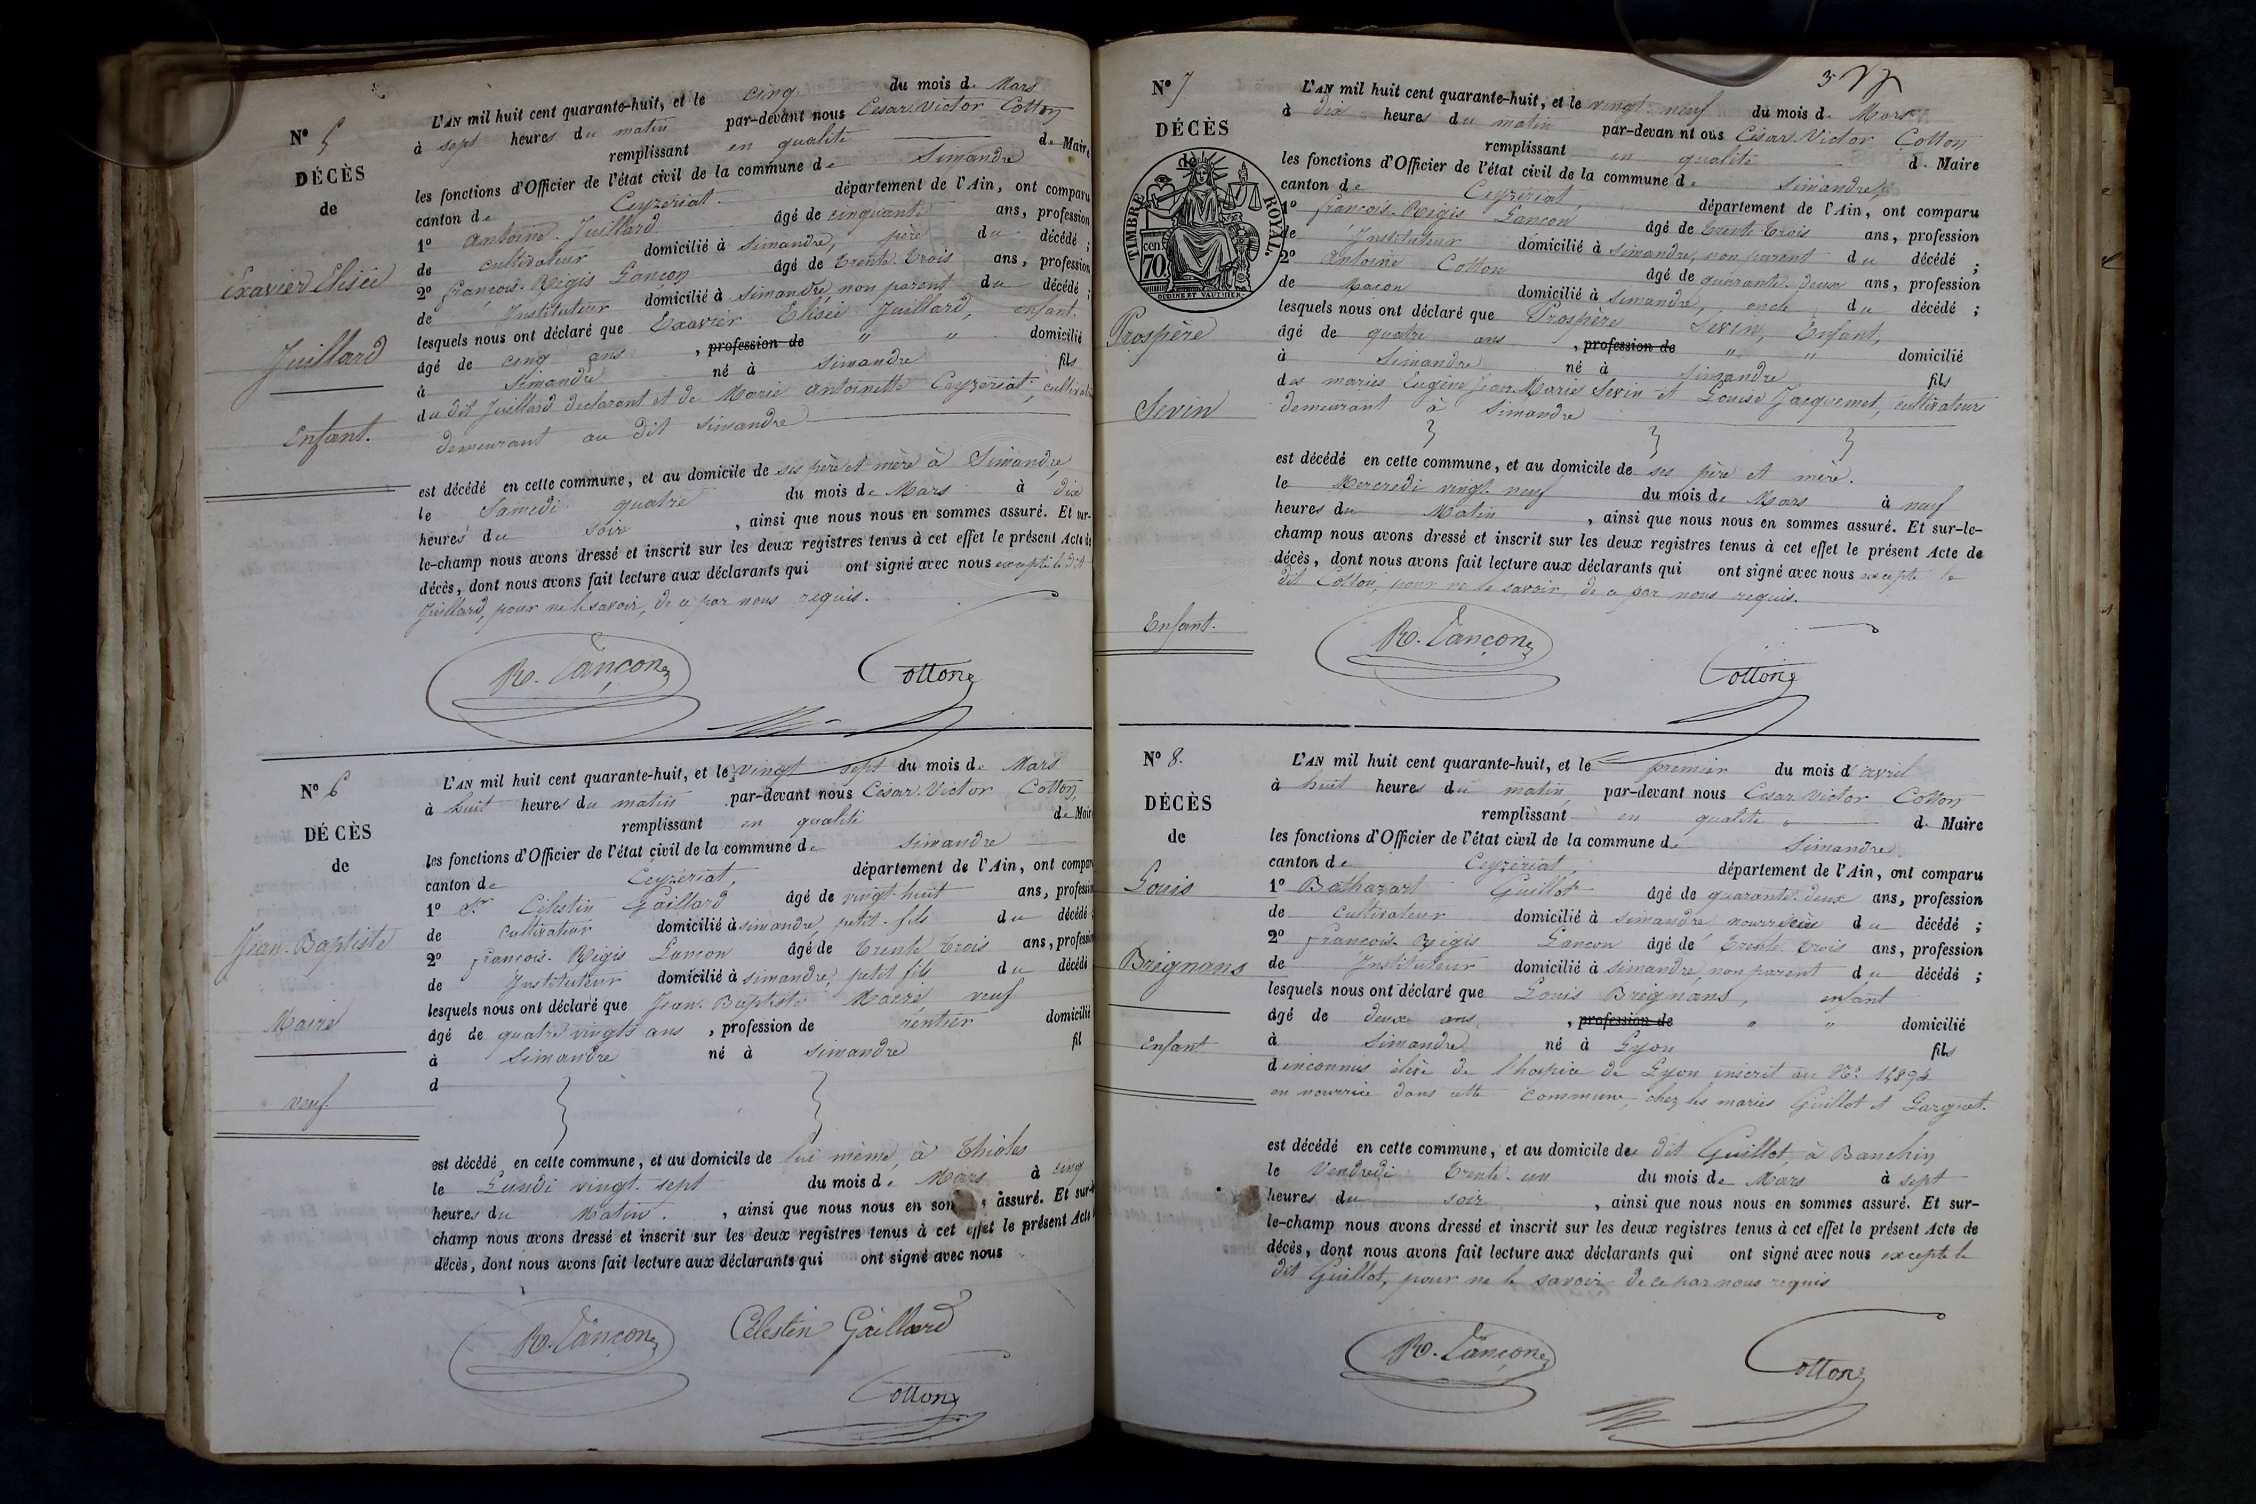 N° 5
DÉCÈS
de
Exavier Elisée
Juillard
Enfant.
L'AN mil huit cent quarante-huit, et le cinq du mois de Mars
à sept heures du matin par-devant nous César Victor Cotton
remplissant en qualité de Maire
les fonctions d'Officier de l'état civil de la commune de Simandre
canton de Ceyzeriat département de l'Ain, ont comparu
1° Antoine Juillard âgé de cinquante ans, profession
de cultivateur domicilié à Simandre, père du décédé ;
2° françois-Régis Lançon âgé de trente trois ans, profession
de Instituteur domicilié à Simandre non parent du décédé ;
lesquels nous ont déclaré que Exavier Elisée Juillard, enfant.
âgé de cinq ans , profession de " " domicilié
à Simandre né à Simandre fils
du dit Juillard déclarant et de Marie Antoinette Ceyzeriat,
demeurant au dit Simandre
est décédé en cette commune, et au domicile de ses père et mère à Simandre,
le Samedi quatre du mois de Mars à dix
heures du soir , ainsi que nous nous en sommes assuré. Et sur-
le-champ nous avons dressé et inscrit sur les deux registres tenus à cet effet le présent Acte de
décès, dont nous avons fait lecture aux déclarants qui ont signé avec nous excepté le dit
Juillard, pour ne le savoir, de ce par nous requis.
R. Lançon
Cotton
N° 6
DÉCÈS
de
Jean-Baptiste
Maire
veuf.
L'AN mil huit cent quarante-huit, et le vingt sept du mois de Mars
à huit heures du matin par-devant nous César Victor Cotton,
remplissant en qualité de Maire
les fonctions d'Officier de l'état civil de la commune de Simandre
canton de Ceyzériat, département de l'Ain, ont comparu
1° Célestin Gaillard âgé de vingt huit ans, profession
de cultivateur domicilié à Simandre, petit-fils du décédé ;
2° françois-Régis Lançon âgé de trente trois ans, profession
de Instituteur domicilié à Simandre, petit fils du décédé
lesquels nous ont déclaré que Jean-Baptiste Maire veuf
âgé de quatre vingts ans , profession de rentier domicilié
à Simandre né à Simandre fil
d
est décédé en cette commune, et au domicile de lui même, à Thioles
le Lundi vingt-sept du mois de Mars à cinq
heures du Matin. , ainsi que nous nous en som assuré. Et sur-le-
champ nous avons dressé et inscrit sur les deux registres tenus à cet effet le présent Acte
décès, dont nous avons fait lecture aux déclarants qui ont signé avec nous
R. Lançon
Célestin Gaillard
Cotton
N° 7
DÉCÈS
de
TIMBRE ROYAL.
cen 70
OUDINE ET VAUTHIER
Prospère
Sevin
Enfant.
L'AN mil huit cent quarante-huit, et le vingt-neuf du mois de Mars
à dix heures du matin par-devan nt ous César Victor Cotton
remplissant en qualité de Maire
les fonctions d'Officier de l'état civil de la commune de Simandre,
canton de Ceyzériat, département de l'Ain, ont comparu
1° françois-Régis Lançon âgé de trente trois ans, profession
de Instituteur domicilié à Simandre, non parent du décédé ;
2° Antoine Cotton âgé de quarante-deux ans, profession
de Maçon domicilié à Simandre, oncle du décédé ;
lesquels nous ont déclaré que Prospère Sevin, Enfant,
âgé de quatre ans , profession de " " domicilié
à Simandre né à Simandre fils
des mariés Eugène Jean-Marie Sevin et Louise Jacquemet, cultivateurs
demeurant à Simandre
est décédé en cette commune, et au domicile de ses père et mère.
le Mercredi vingt-neuf du mois de Mars à neuf
heures du Matin , ainsi que nous nous en sommes assuré. Et sur-le-
champ nous avons dressé et inscrit sur les deux registres tenus à cet effet le présent Acte de
décès, dont nous avons fait lecture aux déclarants qui ont signé avec nous excepté le
dit Cotton, pour ne le savoir, de ce par nous requis.
R. Lançon
Cotton
N° 8.
DÉCÈS
de
Louis
Brignans
Enfant
L'AN mil huit cent quarante-huit, et le premier du mois d'avril
à huit heures du matin, par-devant nous César Victor Cotton
remplissant en qualité de Maire
les fonctions d'Officier de l'état civil de la commune de Simandre.
canton de Ceyzériat, département de l'Ain, ont comparu
1° Bathazart Guillot âgé de quarante-deux ans, profession
de cultivateur domicilié à Simandre, nourricier du décédé ;
2° françois-Régis Lançon âgé de trente trois ans, profession
de Instituteur domicilié à Simandre, non parent du décédé ;
lesquels nous ont déclaré que Louis Brignans, enfant
âgé de deux ans , profession de " " domicilié
à Simandre né à Lyon fils
d'inconnus élève de l'hospice de Lyon inscrit au N°
en nourrice dans cette commune, chez les mariés Guillot et
est décédé en cette commune, et au domicile de dit Guillot, à Banchin
le Vendredi trente-un du mois de Mars à sept
heures du soir , ainsi que nous nous en sommes assuré. Et sur-
le-champ nous avons dressé et inscrit sur les deux registres tenus à cet effet le présent Acte de
décès, dont nous avons fait lecture aux déclarants qui ont signé avec nous excepté le
dit Guillot, pour ne le savoir de ce par nous requis
R. Lançon
Cotton